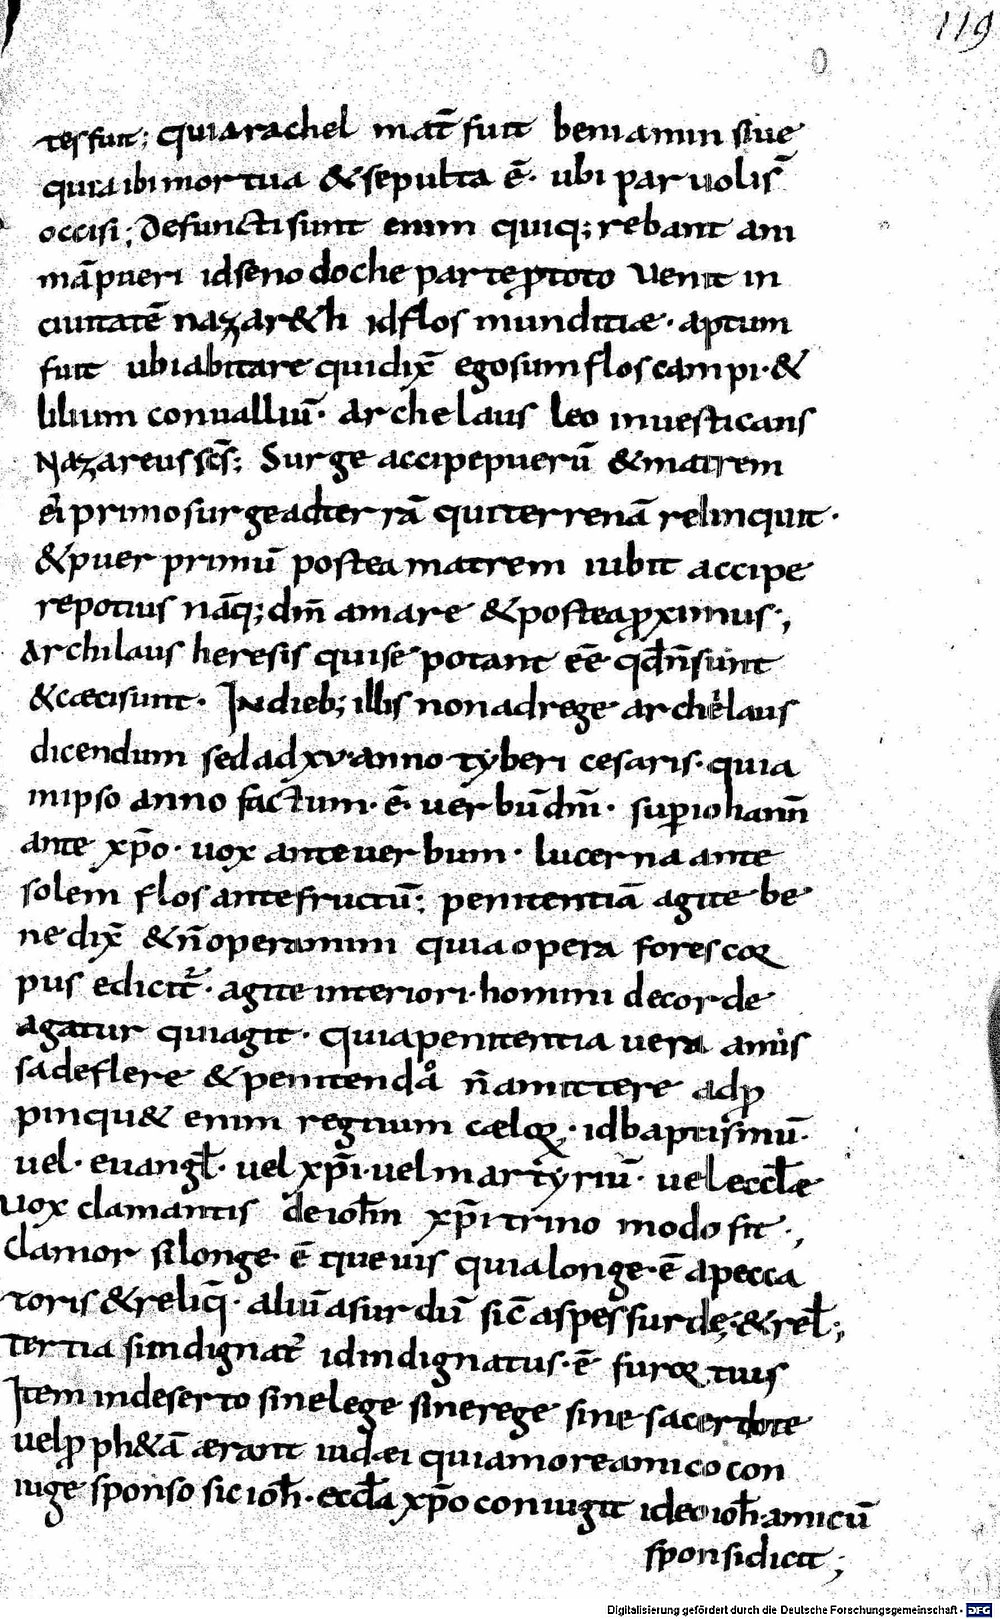 119
tesfuit; quiarachel mat̄ fuit beniamin siue
quia ibi mortua & sepulta ē· ubi paruolis
occisi; Defuncti sunt enim quiq;rebant ani
mā pueri id senodoche parte ꝓtoto Venit in
ciuitatē nazar&h id flos munditiæ· aptum
fuit ubiabitare quidix̄ egosum flos campi·&
lilium conualliū· archelaus leo inuesticans
Nazareus sc̄s; Surge accipe puerū & matrem
ei primo surge adterrā qui terrenā relinquit·
& puer primū postea matrem iubit accipe
re potius nāq; dm̄ amare & postea ꝓximus;
Archilaus heresis qui se potant eē qd n̄ sunt
& cæci sunt· In dieb; illis non adrege archelaus
dicendum sed ad xv·anno tyberi cesaris· quia
in ipso anno factum· ē· uerbū dn̄i· suꝑ iohann̄
ante xp̄o· uox ante uerbum· lucerna ante
solem flos ante fructū; penitentiā agite be
ne dix̄ & n̄ operamini quia opera fores coꝝ
pus edicit᷑· agite interiori·homini decorde
agatur qui agit· quia penitentia uera amis
sa deflere & penitenda n̄ amittere adꝓ
pinqu& enim regnum cæloꝝ· id baptismū·
uel· euangł· uel xp̄i·uel martyriū· uel eccłæ
uox clamantis de ioh̄m xp̄i trino modo fit·,
clamor si longe ē que uis quia longe·ē apecca
toris & reliq̄· aliū a surdū sic̄ aspes surdę;& rel̄;
tertia si indignat᷑ id indignatus·ē furoꝝ tuis
Item in deserto sine lege sine rege sine sacerdote
uel ꝓph&ā ærant iudæi quia more amico con
iuge sponso sic ioh̄·eccła xp̄o coniugit ideo ioh̄·amicū
sponsi dicit;
Digitalisierung gefördert durch die Deutsche Forschungsgemeinschaft - DFG